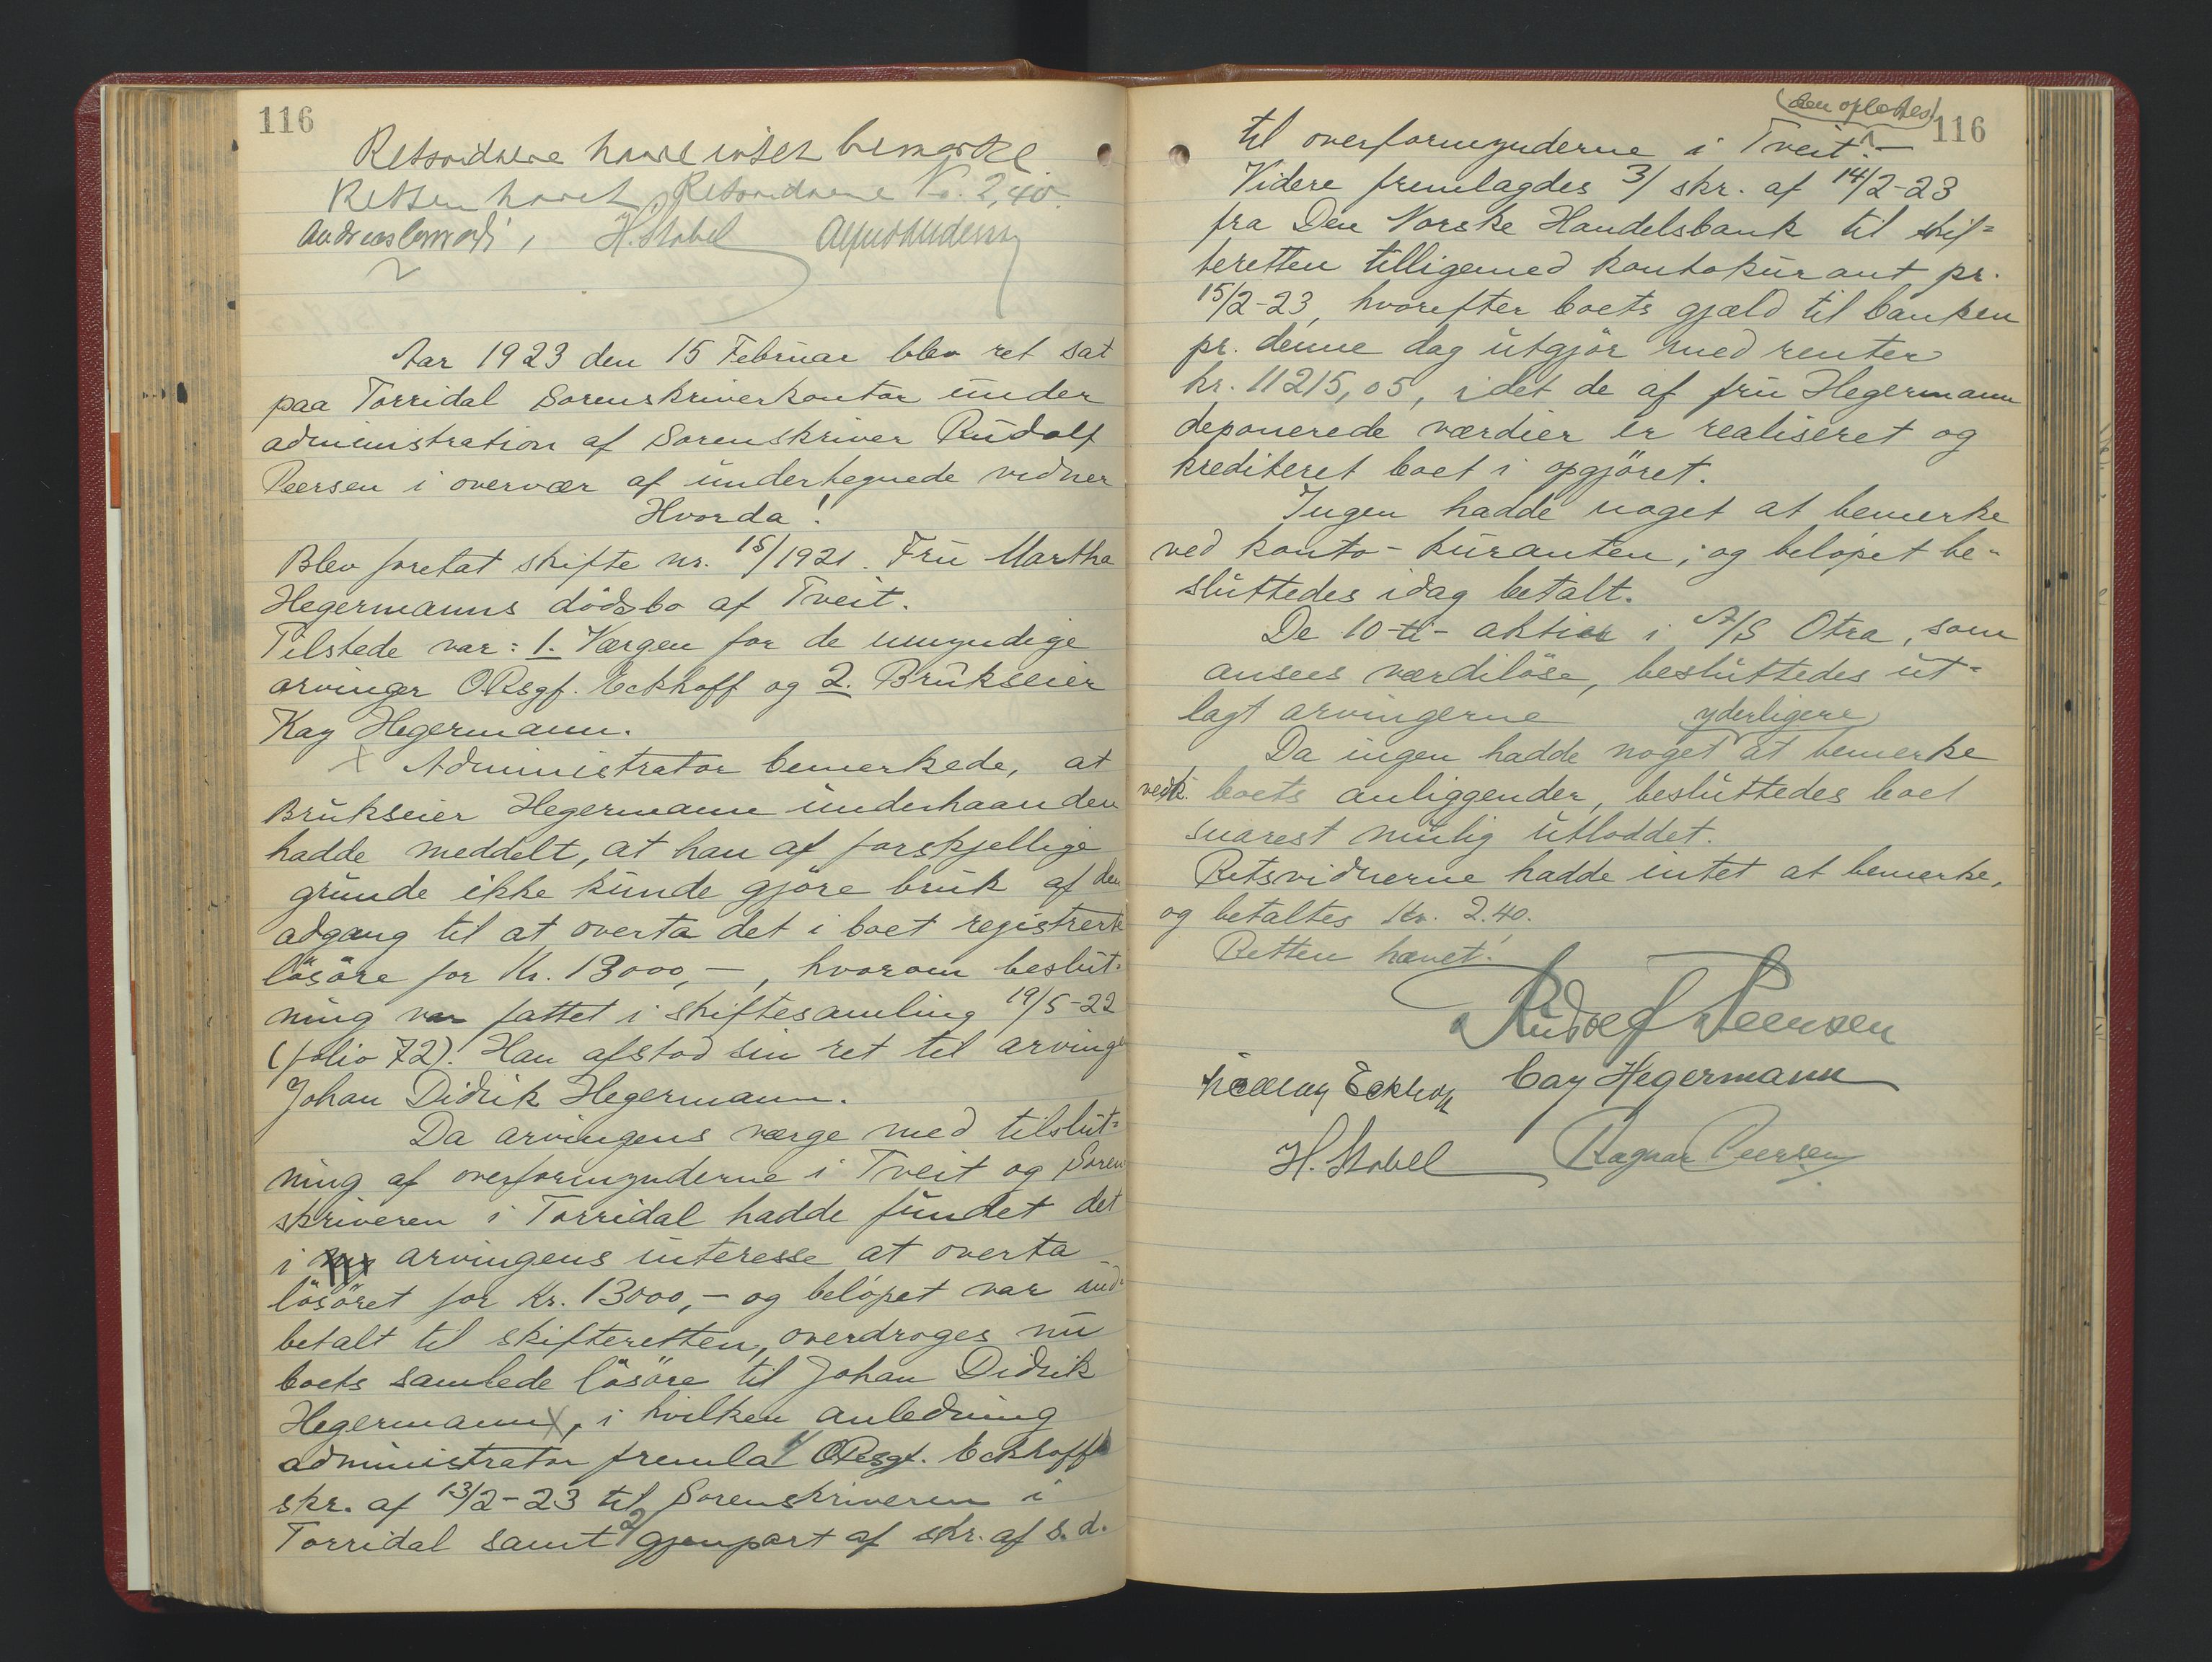 116
Retsvidnene havde intet bemerke
Retten hævet, Retsvidnene Kr. 2,40.
H. Stabel
Aar 1923 den 15 Februar blev ret sat
paa Torridal Sorenskriverkontor under
administration af Sorenskriver Rudolf
Peersen i overvær af undertegnede vidner
Hvorda!
Blev foretat skifte nr. 15/1921. Fru Martha
Hegermanns dödsbo af Tveit.
Tilstede var: 1. Værgen for de umyndige
arvinger ORsgf. Eckhoff og 2. Brukseier
Kay Hegermann.
x Administrator bemerkede, at
Brukseier Hegermann underhaanden
hadde meddelt, at han af forskjellige
grunde ikke kunde gjöre bruk af den
adgang til at overta det i boet registrerte
lösöre for Kr. 13000,-, hvorom beslut-
ning var fattet i skiftesamling 19/5-22
(folio 72). Han afstod sin ret til arving
Johan Didrik Hegermann.
Da arvingens værge med tilslut-
ning af overformynderne i Tveit og Soren
skriveren i Torridal hadde fundet det
i arvingens interesse at overta
lösöret for Kr. 13000,- og belöpet var ind-
betalt til skifteretten, overdroges nu
boets samlede lösöre til Johan Didrik
Hegermann x, i hvilken anledning
administrator fremla 1/ ORsgf. Eckhoffs
skr. af 13/2-23 til Sorenskriveren i
Torridal samt 2/ gjenpart af skr. af s.d.
(den oplæstes) 116
til overformynderne i Tveit.-
Videre fremlagdes 3/ skr. af 14/2-23
fra Den Norske Handelsbank til skif-
teretten tilligemed kontokurant pr.
15/2-23, hvorefter boets gjæld til banken
pr. denne dag utgjör med renter
kr. 11215,05, idet de af fru Hegermann
deponerede værdier er realiseret og
krediteret boet i opgjöret.
Ingen hadde noget at bemerke
ved konto-kuranten, og belöpet be-
sluttedes idag betalt.
De 10-ti- aktier i A/S Otra, som
ansees værdilöse, besluttedes ut-
lagt arvingerne
yderligere
Da ingen hadde noget at bemerke
vedk. boets anliggender, besluttedes boet
snarest mulig utloddet.
Retsvidnerne hadde intet at bemerke,
og betaltes Kr. 2.40.
Retten hævet!
Rudolf Peersen
Eckhoff Cay Hegermann
H. Stabel Ragnar Peersen